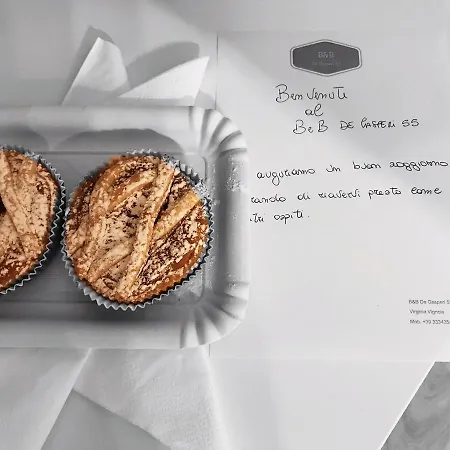 B&B
Benvenuti
al
BeB DE GASPERI 55
auguriamo un buon soggiorno
rando di rivervi presto come
tri ospiti.
B&B De Gasperi 5
Virginia Vignola
Mob. +39 333435